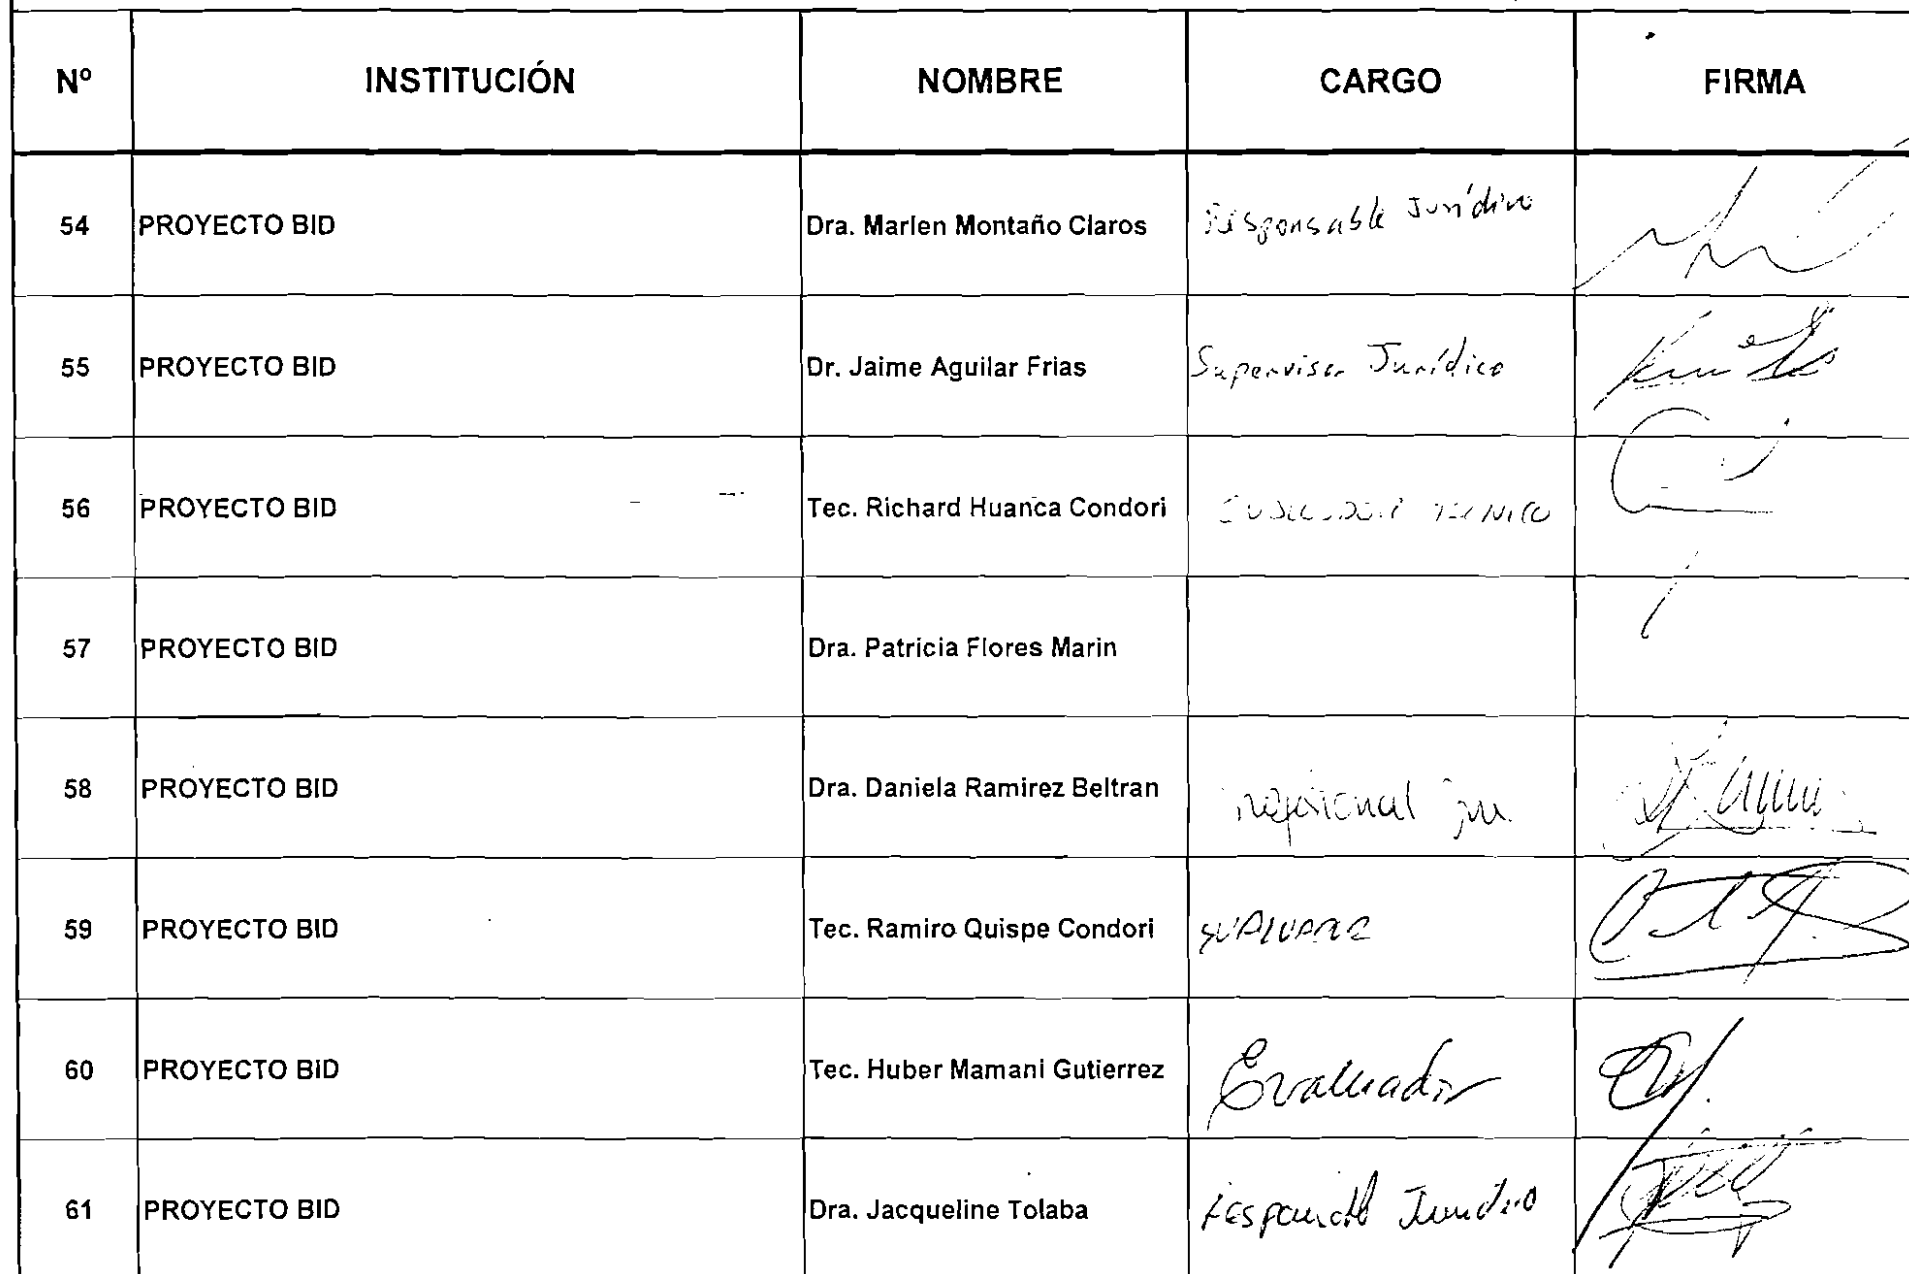 Nº INSTITUCIÓN NOMBRE CARGO FIRMA
54 PROYECTO BID Dra. Marlen Montaño Claros Responsable Jurídico
55 PROYECTO BID Dr. Jaime Aguilar Frias Supervisor Jurídico
56 PROYECTO BID Tec. Richard Huanca Condori
57 PROYECTO BID Dra. Patricia Flores Marin
58 PROYECTO BID Dra. Daniela Ramirez Beltran
59 PROYECTO BID Tec. Ramiro Quispe Condori
60 PROYECTO BID Tec. Huber Mamani Gutierrez Evaluador
61 PROYECTO BID Dra. Jacqueline Tolaba